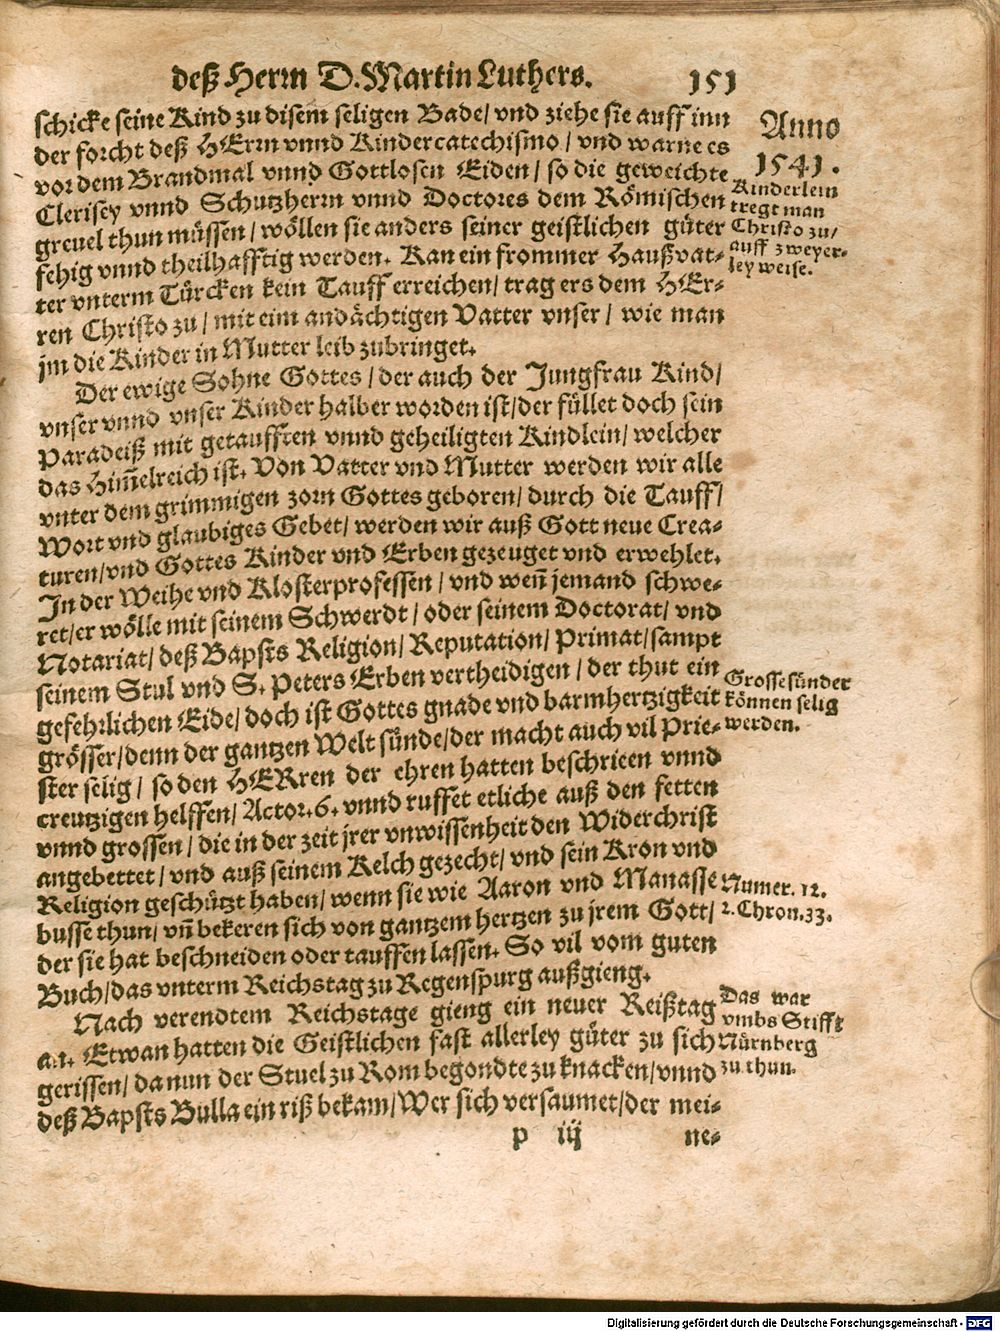 deß Herrn D. Martin Luthers. 151
schicke seine Kind zu disem seligen Bade/ vnd ziehe sie auff inn
der forcht deß HErrn vnnd Kindercatechismo/ vnd warne es
vor dem Brandmal vnnd Gottlosen Eiden/ so die geweichte
Clerisey vnnd Schutzherrn vnnd Doctores dem Römischen
greuel thun müssen/ wöllen sie anders seiner geistlichen güter
fehig vnnd theilhafftig werden. Kan ein frommer Haußvat-
ter vnterm Türcken kein Tauff erreichen/ trag ers dem HEr-
ren Christo zu/ mit eim andächtigen Vatter vnser/ wie man
jm die Kinder in Mutter leib zubringet.
Der ewige Sohne Gottes/ der auch der Jungfrau Kind/
vnser vnnd vnser Kinder halber worden ist/ der füllet doch sein
Paradeiß mit getaufften vnnd geheiligten Kindlein/ welcher
das Him̃elreich ist. Von Vatter vnd Mutter werden wir alle
vnter dem grimmigen zorn Gottes geboren/ durch die Tauff/
Wort vnd glaubiges Gebet/ werden wir auß Gott neue Crea-
turen/ vnd Gottes Kinder vnd Erben gezeuget vnd erwehlet.
In der Weihe vnd Klosterprofessen/ vnd weñ jemand schwe-
ret/ er wölle mit seinem Schwerdt/ oder seinem Doctorat/ vnd
Notariat/ deß Bapsts Religion/ Reputation/ Primat/ sampt
seinem Stul vnd S. Peters Erben vertheidigen/ der thut ein
gefehrlichen Eide/ doch ist Gottes gnade vnd barmhertzigkeit
grösser/ denn der gantzen Welt sünde/ der macht auch vil Prie-
ster selig/ so den HERren der ehren hatten beschrieen vnnd
creutzigen helffen/ Actor. 6. vnnd ruffet etliche auß den fetten
vnnd grossen/ die in der zeit jrer vnwissenheit den Widerchrist
angebettet/ vnd auß seinem Kelch gezecht/ vnd sein Kron vnd
Religion geschützt haben/ wenn sie wie Aaron vnd Manasse
busse thun/ vñ bekeren sich von gantzem hertzen zu jrem Gott/
der sie hat beschneiden oder tauffen lassen. So vil vom guten
Buch/ das vnterm Reichstag zu Regenspurg außgieng.
Nach verendtem Reichstage gieng ein neuer Reißtag
an. Etwan hatten die Geistlichen fast allerley güter zu sich
gerissen/ da nun der Stuel zu Rom begondte zu knacken/ vnnd
deß Bapsts Bulla ein riß bekam/ Wer sich versaumet/ der mei-
p iij ne-
Anno
1541.
Kinderlein
tregt man
Christo zu/
auff zweyer-
ley weise.
Grosse sünder
können selig
werden.
Numer. 12.
2. Chron. 33.
Das war
vmbs Stifft
Nürnberg
zu thun.
Digitalisierung gefördert durch die Deutsche Forschungsgemeinschaft - DFG